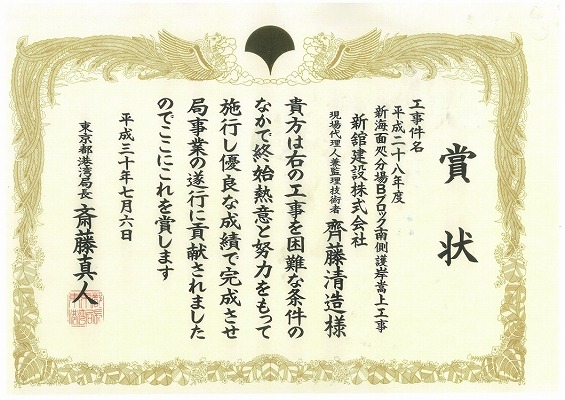 賞状
工事件名
平成二十八年度
新海面処分場Bブロック南側護岸嵩上工事
新舘建設株式会社
現場代理人兼監理技術者 齊藤清造様
貴方は右の工事を困難な条件の
なかで終始熱意と努力をもって
施行し優良な成績で完成させ
局事業の遂行に貢献されました
のでここにこれを賞します
平成三十年七月六日
東京都港湾局長 斎藤真人